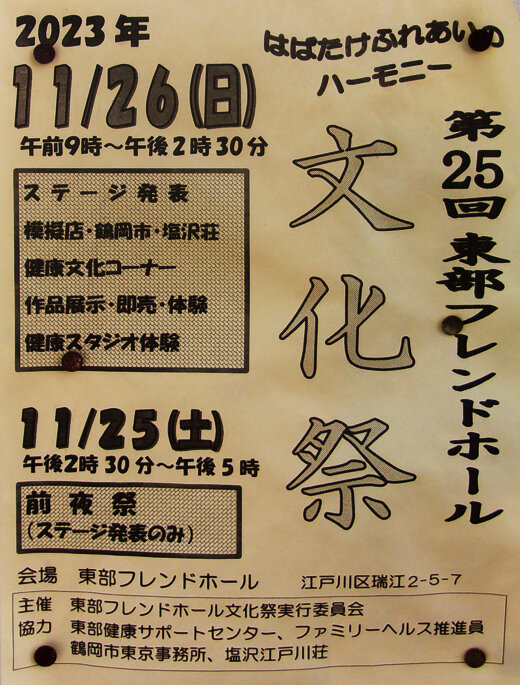 2023年
11/26(日)
午前9時～午後2時30分
ステージ発表
模擬店・鶴岡市・塩沢荘
健康文化コーナー
作品展示・即売・体験
健康スタジオ体験
11/25(土)
午後2時30分～午後5時
前夜祭
(ステージ発表のみ)
はばたけふれあいの
ハーモニー
文化祭
第25回 東部フレンドホール
会場 東部フレンドホール 江戸川区瑞江2-5-7
主催 東部フレンドホール文化祭実行委員会
協力 東部健康サポートセンター、ファミリーヘルス推進員
鶴岡市東京事務所、塩沢江戸川荘